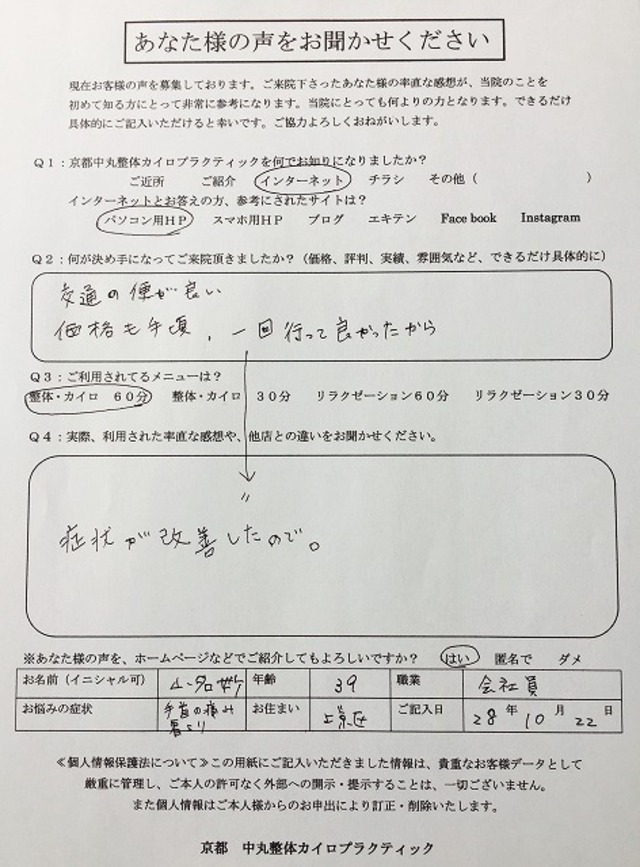 あなた様の声をお聞かせください
現在お客様の声を募集しております。ご来院下さったあなた様の率直な感想が、当院のことを
初めて知る方にとって非常に参考になります。当院にとっても何よりの力となります。できるだけ
具体的にご記入いただけると幸いです。ご協力よろしくおねがいします。
Q1：京都中丸整体カイロプラクティックを何でお知りになりましたか？
ご近所 ご紹介 インターネット チラシ その他（ ）
インターネットとお答えの方、参考にされたサイトは？
パソコン用HP スマホ用HP ブログ エキテン Face book Instagram
Q2：何が決め手になってご来院頂きましたか？（価格、評判、実績、雰囲気など、できるだけ具体的に）
交通の便が良い
価格も手頃、一回行って良かったから
Q3：ご利用されてるメニューは？
整体・カイロ 60分 整体・カイロ 30分 リラクゼーション60分 リラクゼーション30分
Q4：実際、利用された率直な感想や、他店との違いをお聞かせください。
〃
症状が改善したので。
※あなた様の声を、ホームページなどでご紹介してもよろしいですか？ はい 匿名で ダメ
お名前（イニシャル可） 年齢 39 職業 会社員
お悩みの症状 手首の痛み お住まい 上京区 ご記入日 28年10月22日
肩こり
≪個人情報保護法について≫この用紙にご記入いただきました情報は、貴重なお客様データとして
厳重に管理し、ご本人の許可なく外部への開示・提示することは、一切ございません。
また個人情報はご本人様からのお申出により訂正・削除いたします。
京都 中丸整体カイロプラクティック